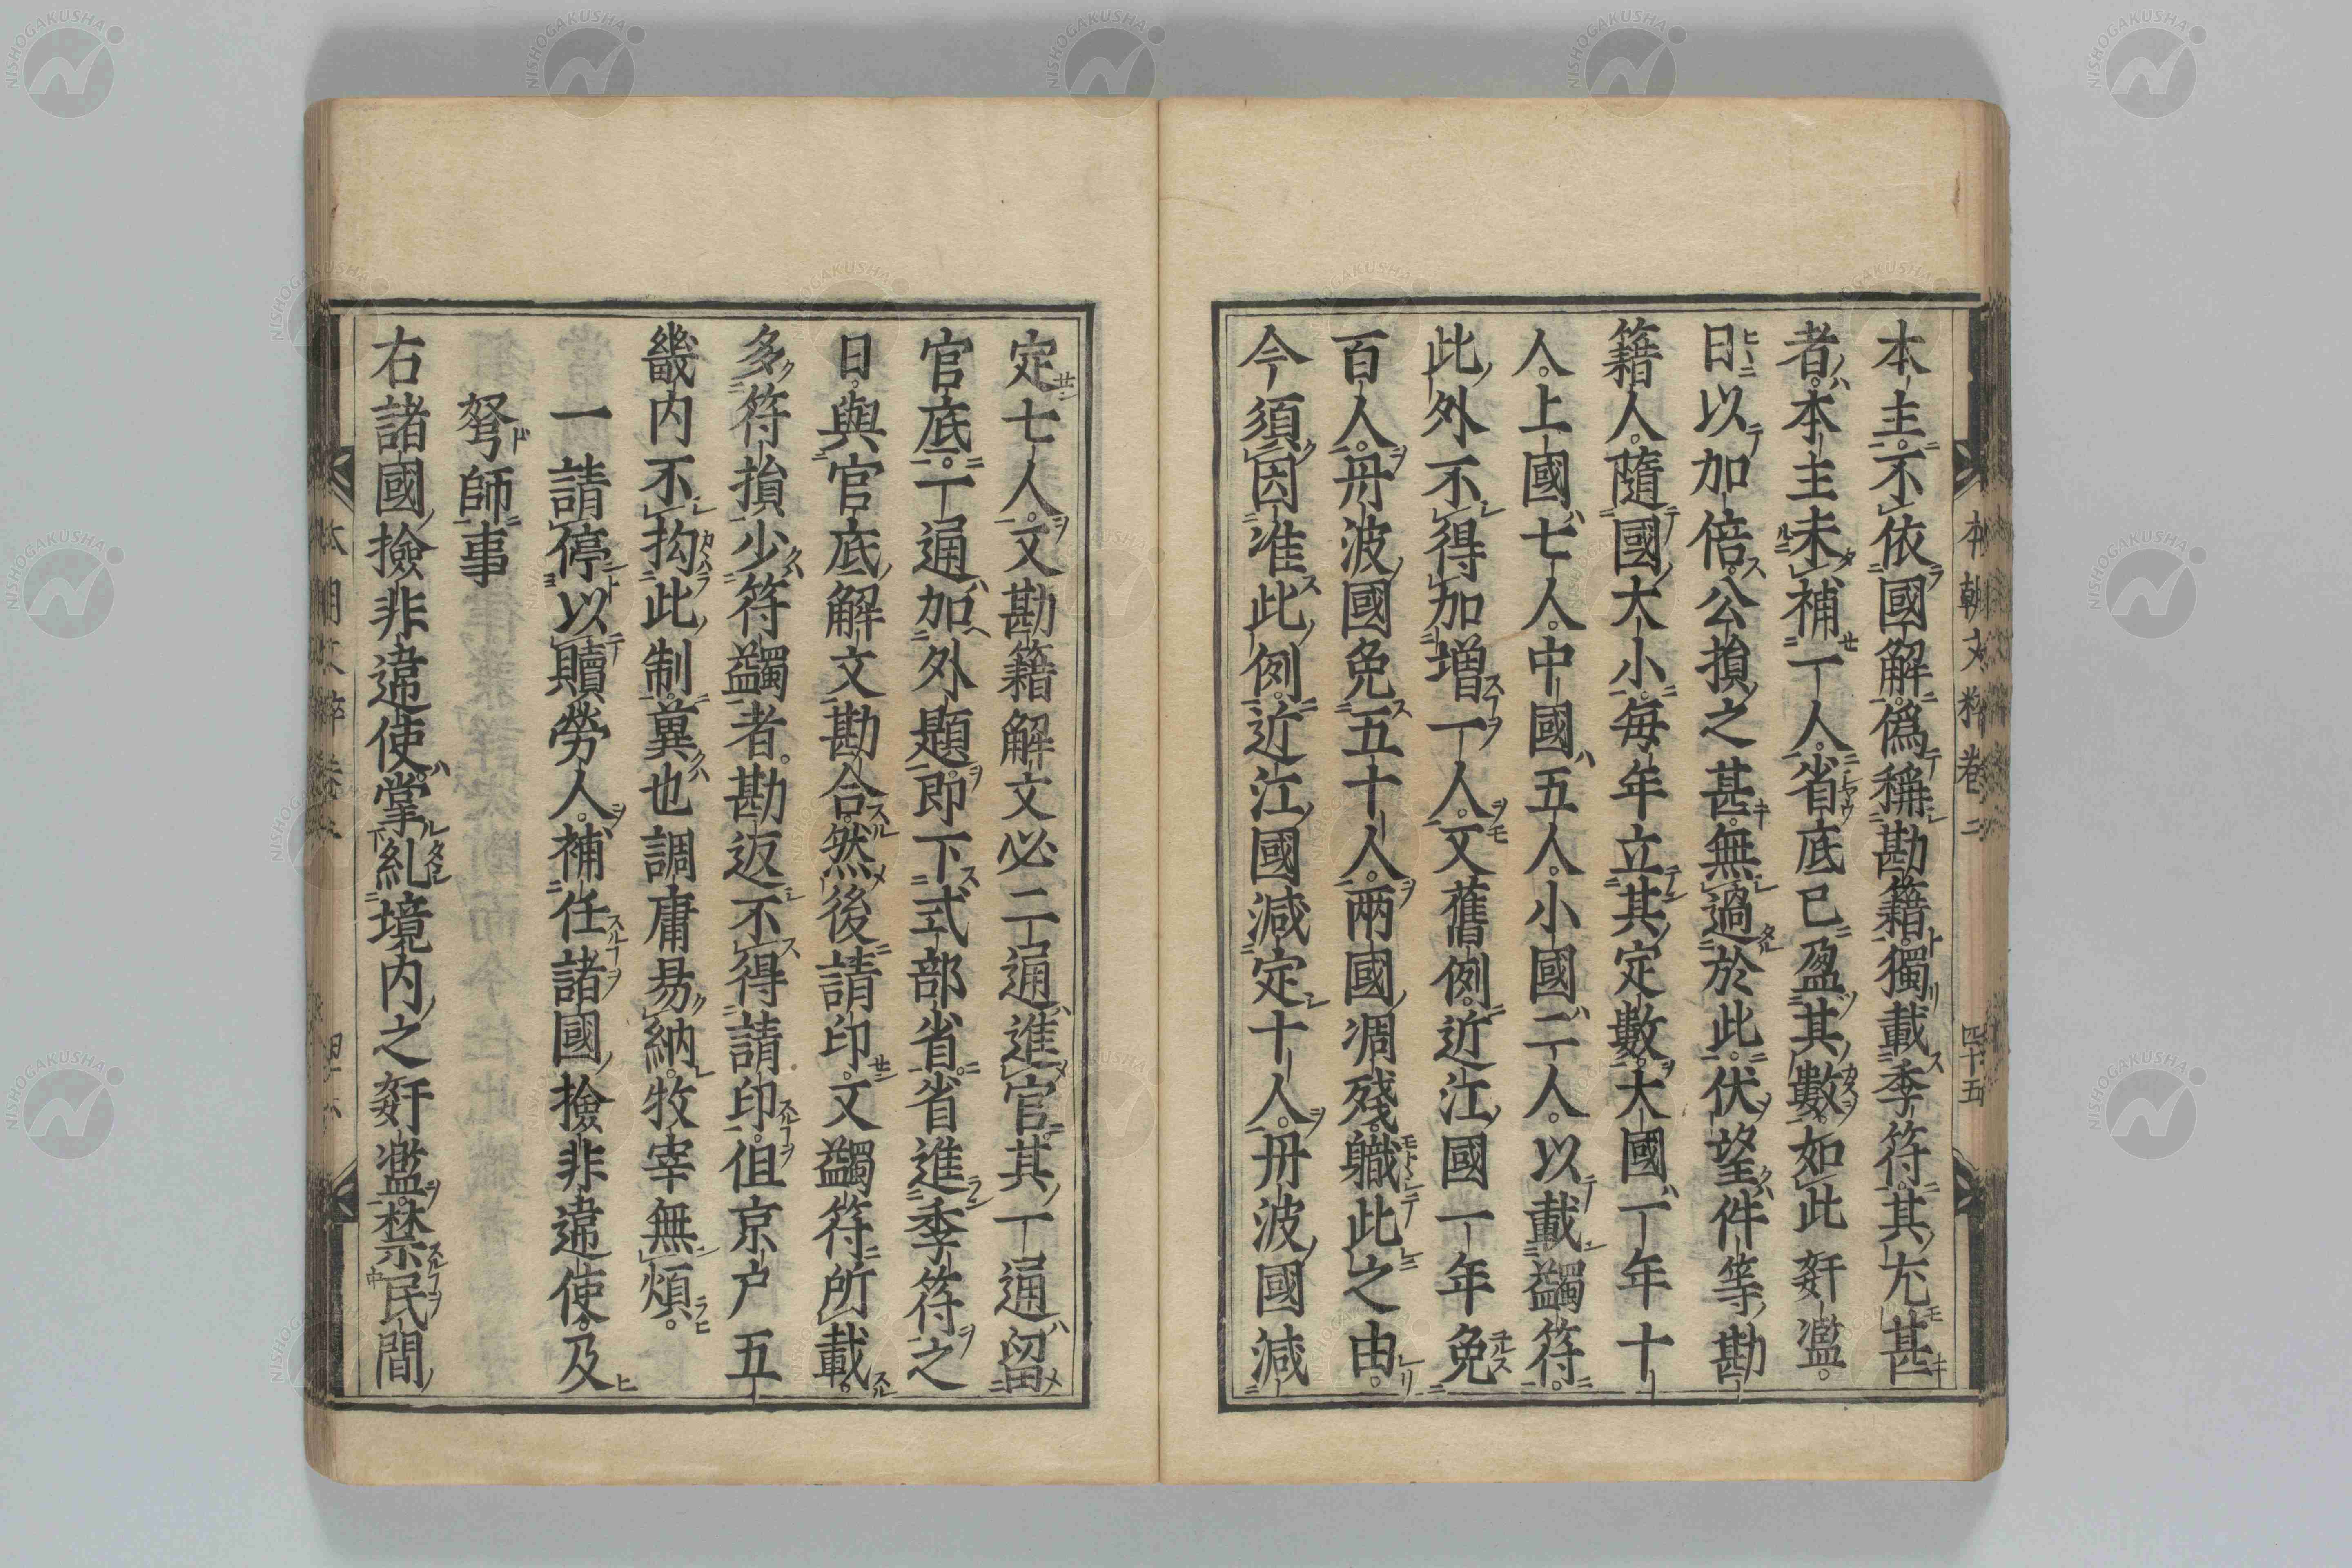 本主不依國解偽稱勘籍獨載季符其尤甚
者本主未補一人省底已盈其數如此姧濫
日以加倍公損之甚無過於此伏望件等勘
籍人隨國大小每年立其定數大國一年十
人上國七人中國五人小國二人以載蠲符
此外不得加增一人又舊例近江國一年免
百人丹波國免五十人兩國凋殘職此之由
今須因准此例近江國減定十人丹波國減
本朝文粹卷二 四十五
定七人又勘籍解文必二通進官其一通留
官底一通加外題即下式部省省進季符之
日與官底解文勘合然後請印又蠲符所載
多符損少符益蠲者勘返不得請印但京戶五
畿内不拘此制冀也調庸易納牧宰無煩
一請停以贖勞人補任諸國撿非違使及
弩師事
右諸國撿非違使掌糺境内之姧濫禁民間
NISHOGAKUSHA